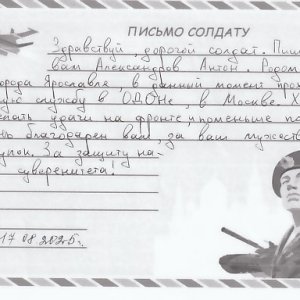 ПИСЬМО СОЛДАТУ
Здравствуй, дорогой солдат. Пиш
вам Александров Антон. Родом
города Ярославля, в данный момент про
ную службу в ОДОНе, в Москве. Х
елать удачи на фронте и поменьше по
нь благодарен вам, за ваш мужеств
упок. За защиту на
суверенитета!
17 08 2025г.